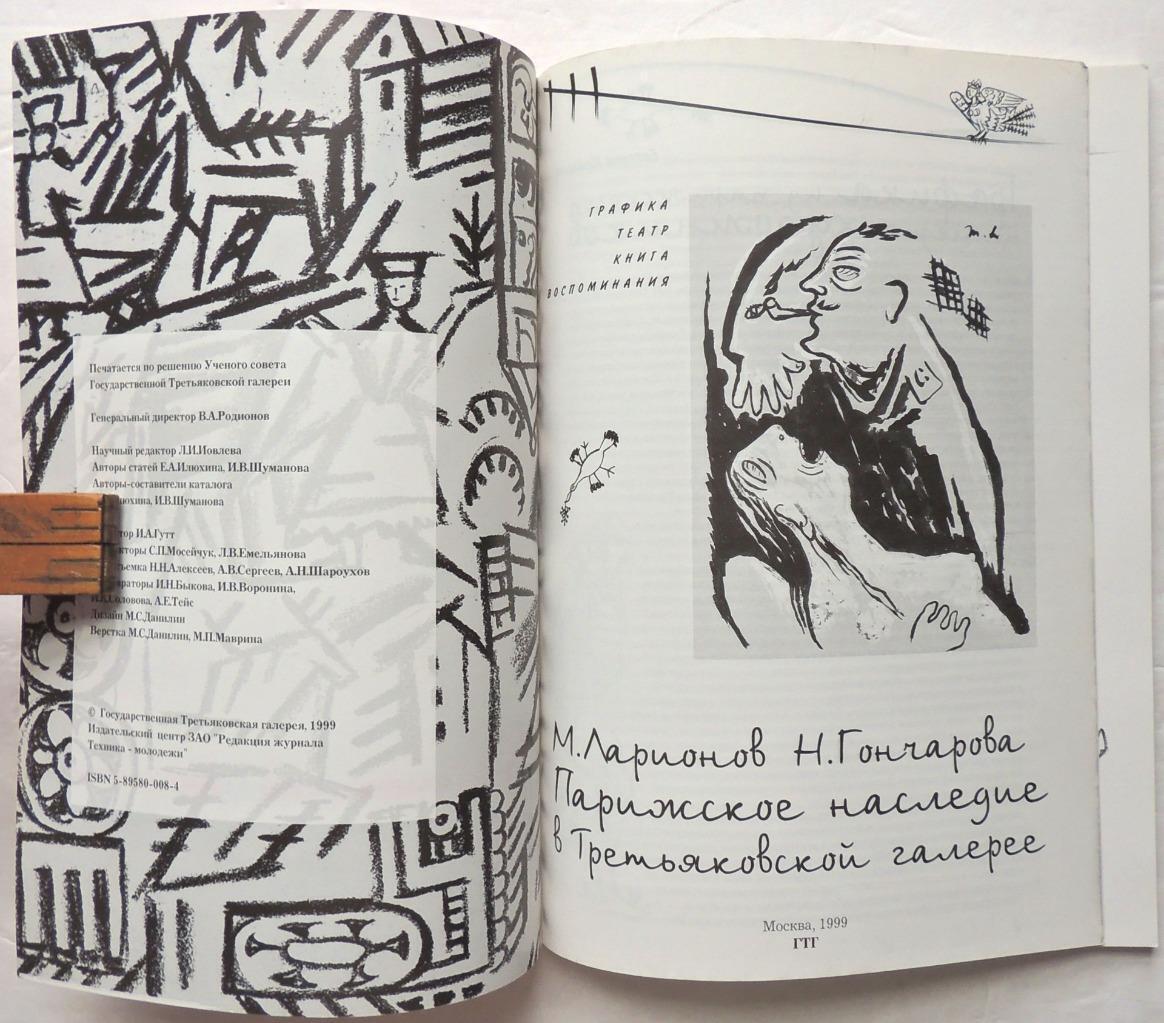 Печатается по решению Ученого совета
Государственной Третьяковской галереи
Генеральный директор В.А.Родионов
Научный редактор Л.И.Иовлева
Авторы статей Е.А.Илюхина, И.В.Шуманова
Авторы-составители каталога
И.В.Шуманова
И.А.Гутт
С.П.Мосейчук, Л.В.Емельянова
Н.Н.Алексеев, А.В.Сергеев, А.Н.Шароухов
И.Н.Быкова, И.В.Воронина,
А.Е.Тейс
Дизайн М.С.Данилин
Верстка М.С.Данилин, М.П.Маврина
© Государственная Третьяковская галерея, 1999
Издательский центр ЗАО "Редакция журнала
Техника - молодежи"
ISBN 5-89580-008-4
ГРАФИКА
ТЕАТР
КНИГА
ВОСПОМИНАНИЯ
М.Ларионов Н.Гончарова
Парижское наследие
в Третьяковской галерее
Москва, 1999
ГТГ